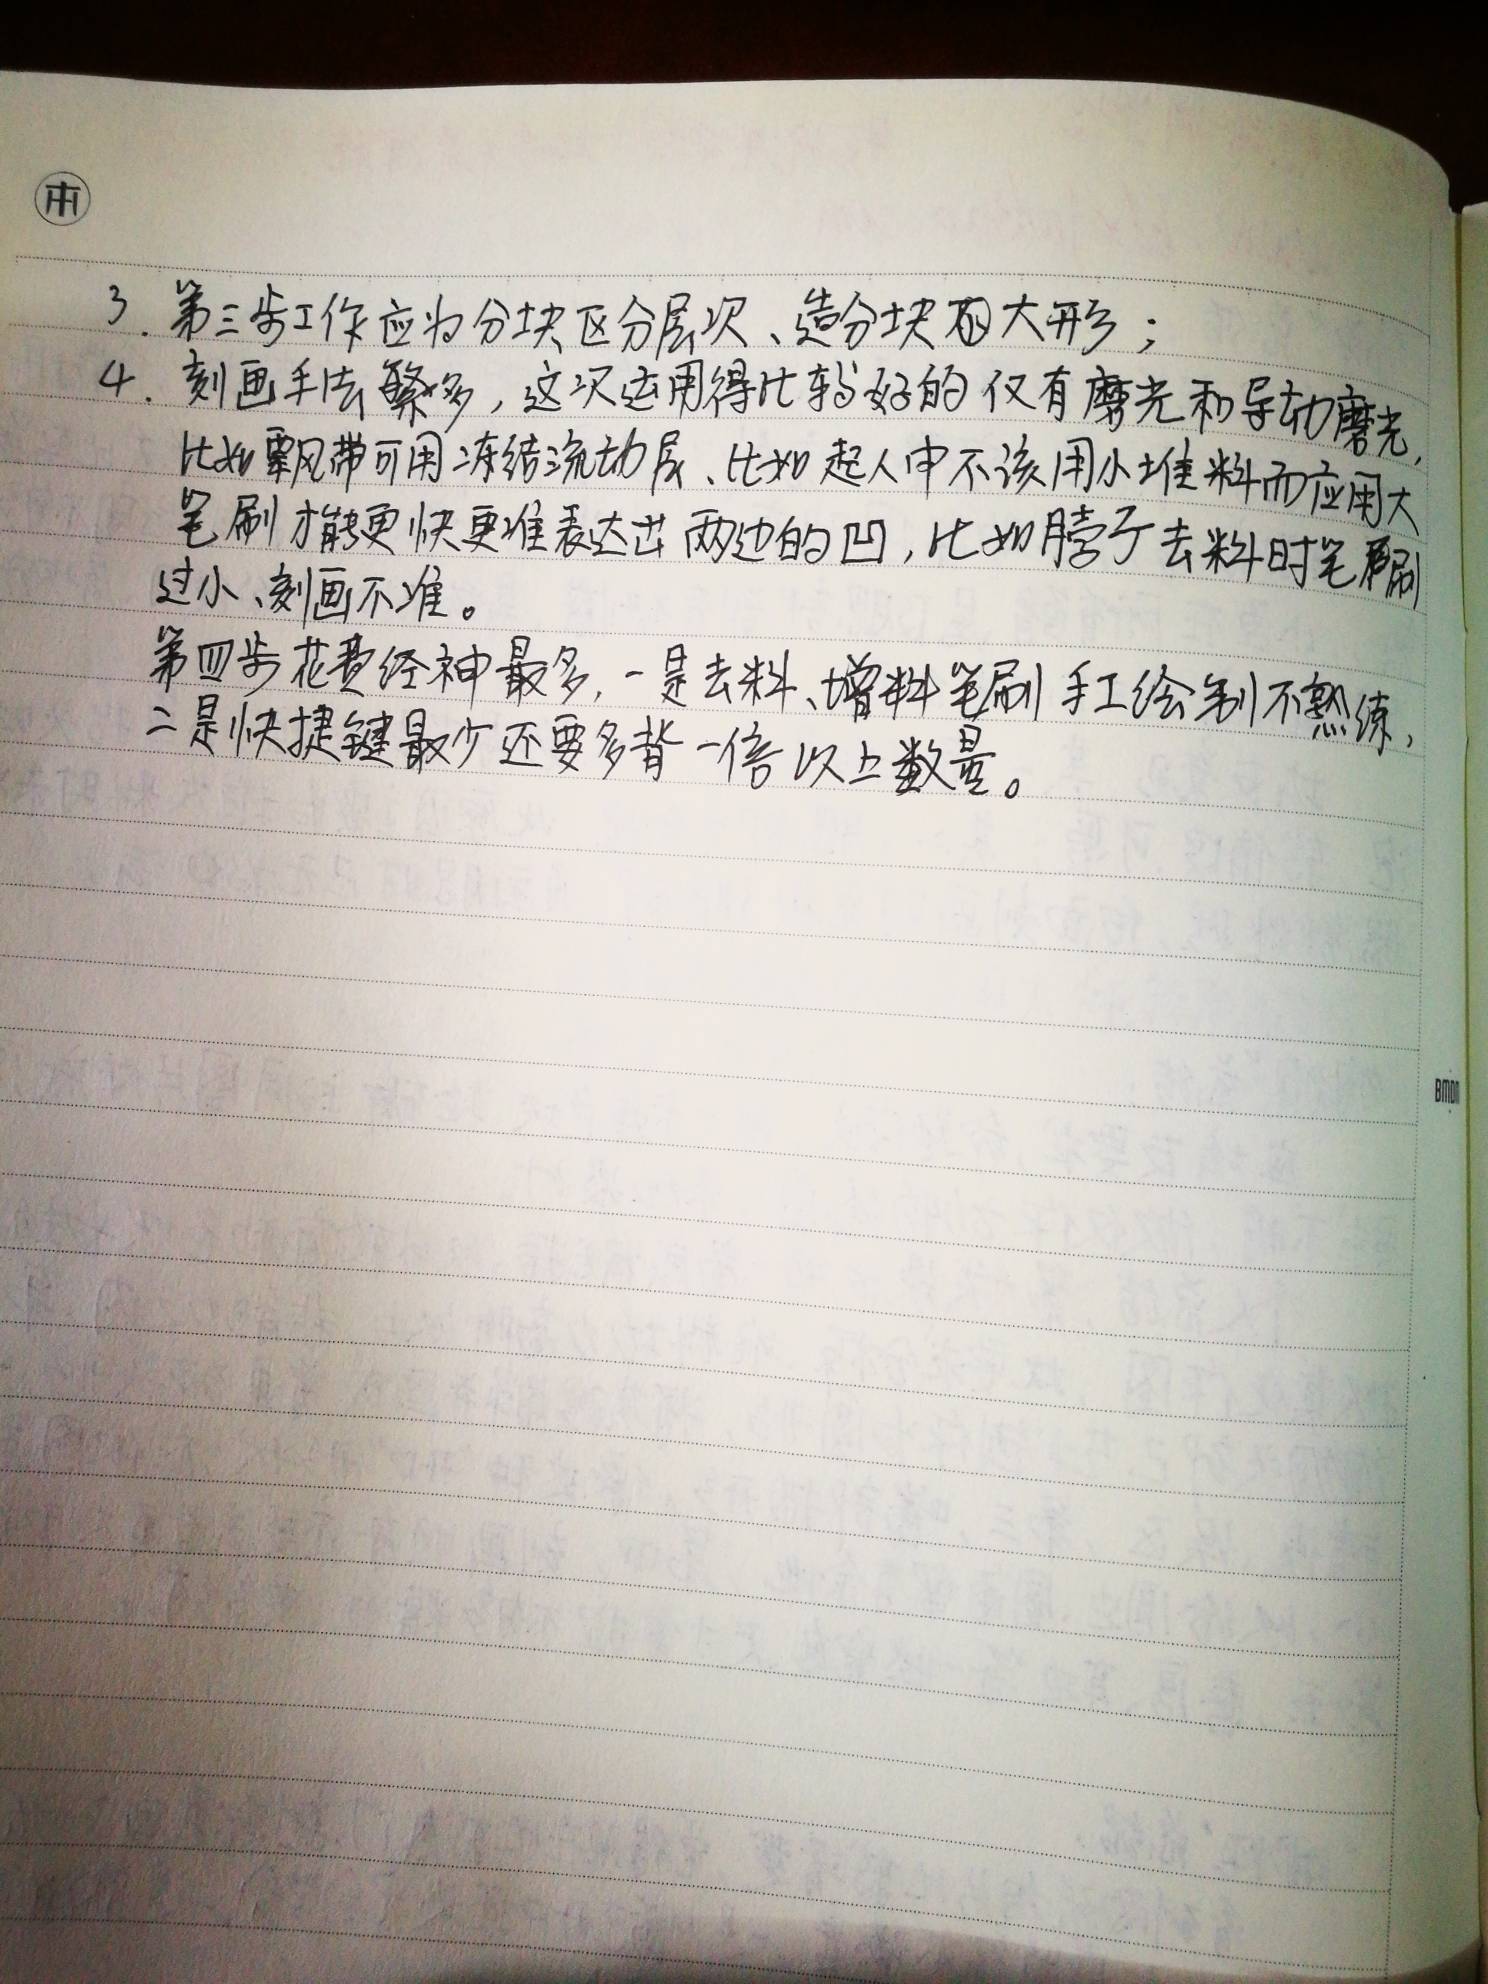 3. 第三步工作应为分块区分层次、造分块面大形；
4. 刻画手法繁多，这次运用得比较好的仅有磨光和导动磨光，
比如飘带可用冻结流动层、比如起人中不该用小堆料而应用大
笔刷才能更快更准表达出两边的凹，比如脖子去料时笔刷
过小、刻画不准。
第四步花费经神最多，一是去料、增料笔刷手工绘制不熟练，
二是快捷键最少还要多背一倍以上数量。